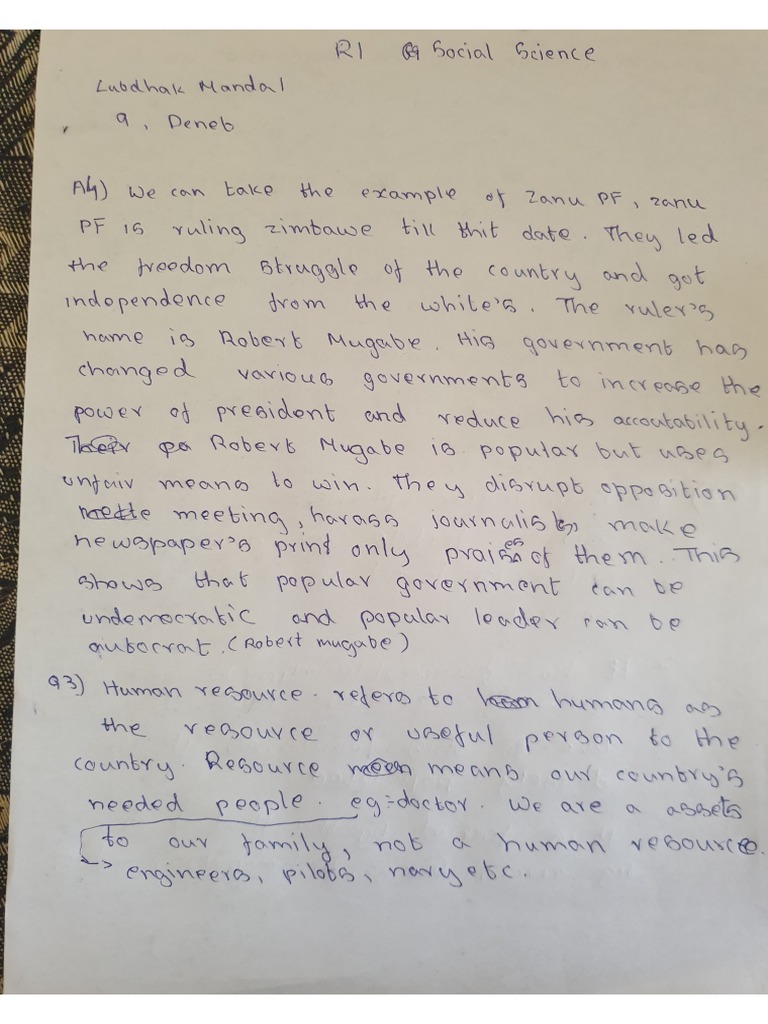 R1 Social Science
Lubdhak Mandal
9, Deneb
A4) We can take the example of Zanu PF, zanu
PF is ruling zimbawe till thit date. They led
the freedom struggle of the country and got
independence from the white's. The ruler's
name is Robert Mugabe. His government has
changed various governments to increase the
power of president and reduce his accoutability.
Robert Mugabe is popular but uses
unfair means to win. They disrupt opposition
meeting, harass journalists, make
newspaper's print only praises of them. This
shows that popular government can be
undemocratic and popular leader can be
autocrat. (Robert mugabe)
Q3) Human resource. refers to humans as
the resource or useful person to the
country. Resource means our country's
needed people. eg:-doctor. We are a assets
to our family, not a human resource.
→ engineers, pilots, navy etc.